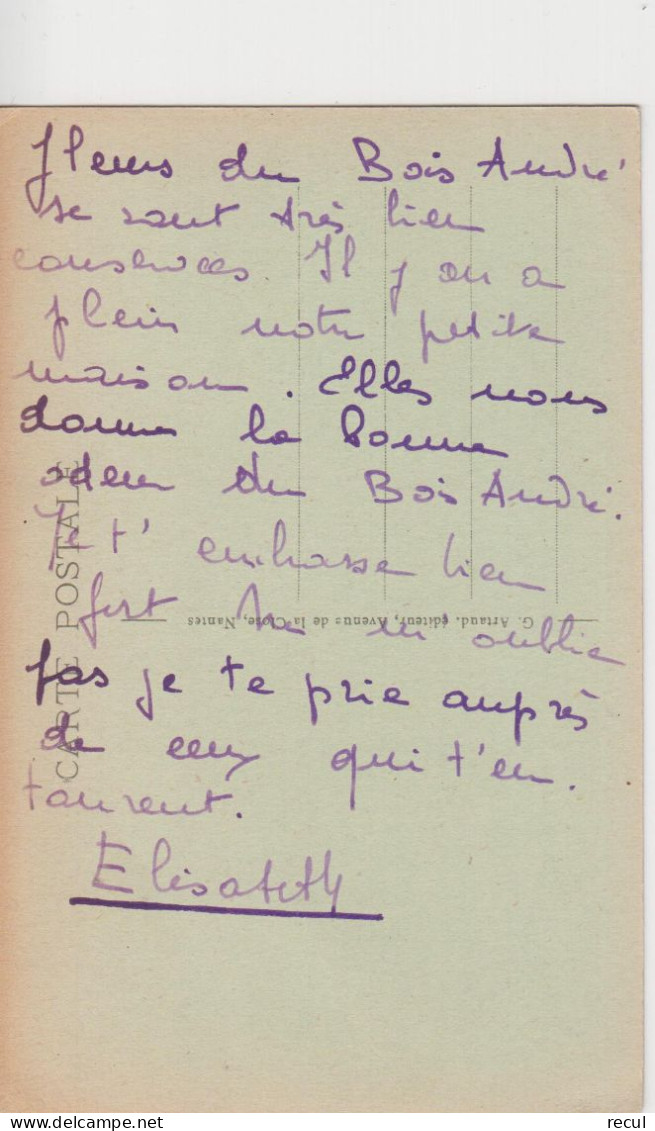 fleurs du Bois André
se sont très bien
conservées Il y en a
plein notre petite
maison. Elles nous
donne la bonne
odeur du Bois André.
Je t'embrasse bien
fort Ne m'oublie
pas je te prie auprès
de ceux qui t'en.
tourent.
Elisabeth
CARTE POSTALE
G. Artaud, éditeur, Avenue de la Close, Nantes
delcampe.net
recul